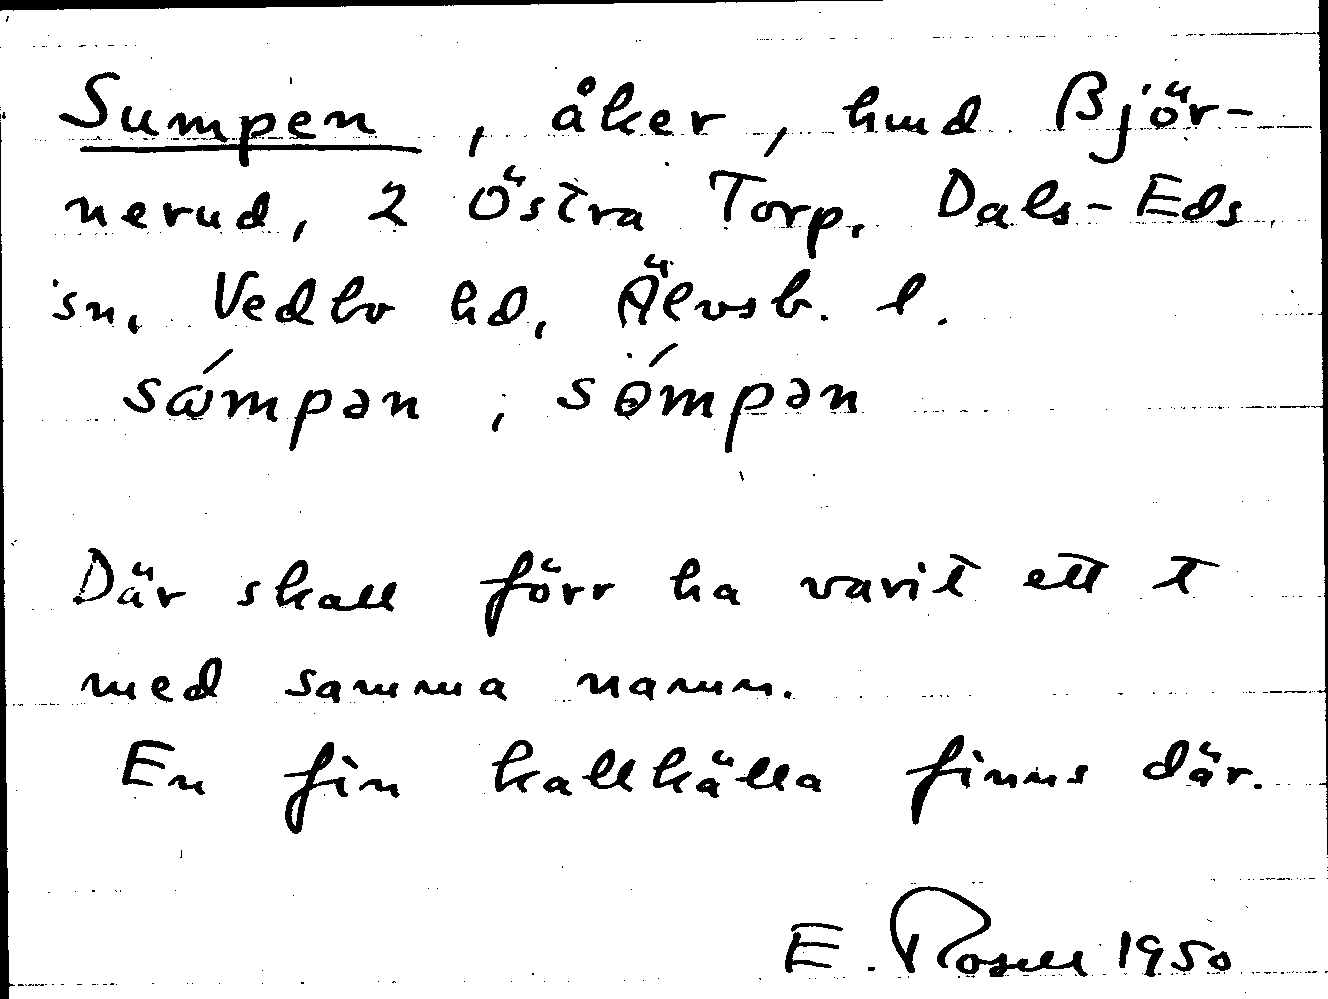 Sumpen, åker, hmd Björ-
nerud, 2 Östra Torp, Dals-Eds
sn, Vedbo hd, Älvsb. l.
sɷ́mpən, sómpən
Där skall förr ha varit ett t
med samma namn.
En fin kallkälla finns där.
E. Rosell 1950